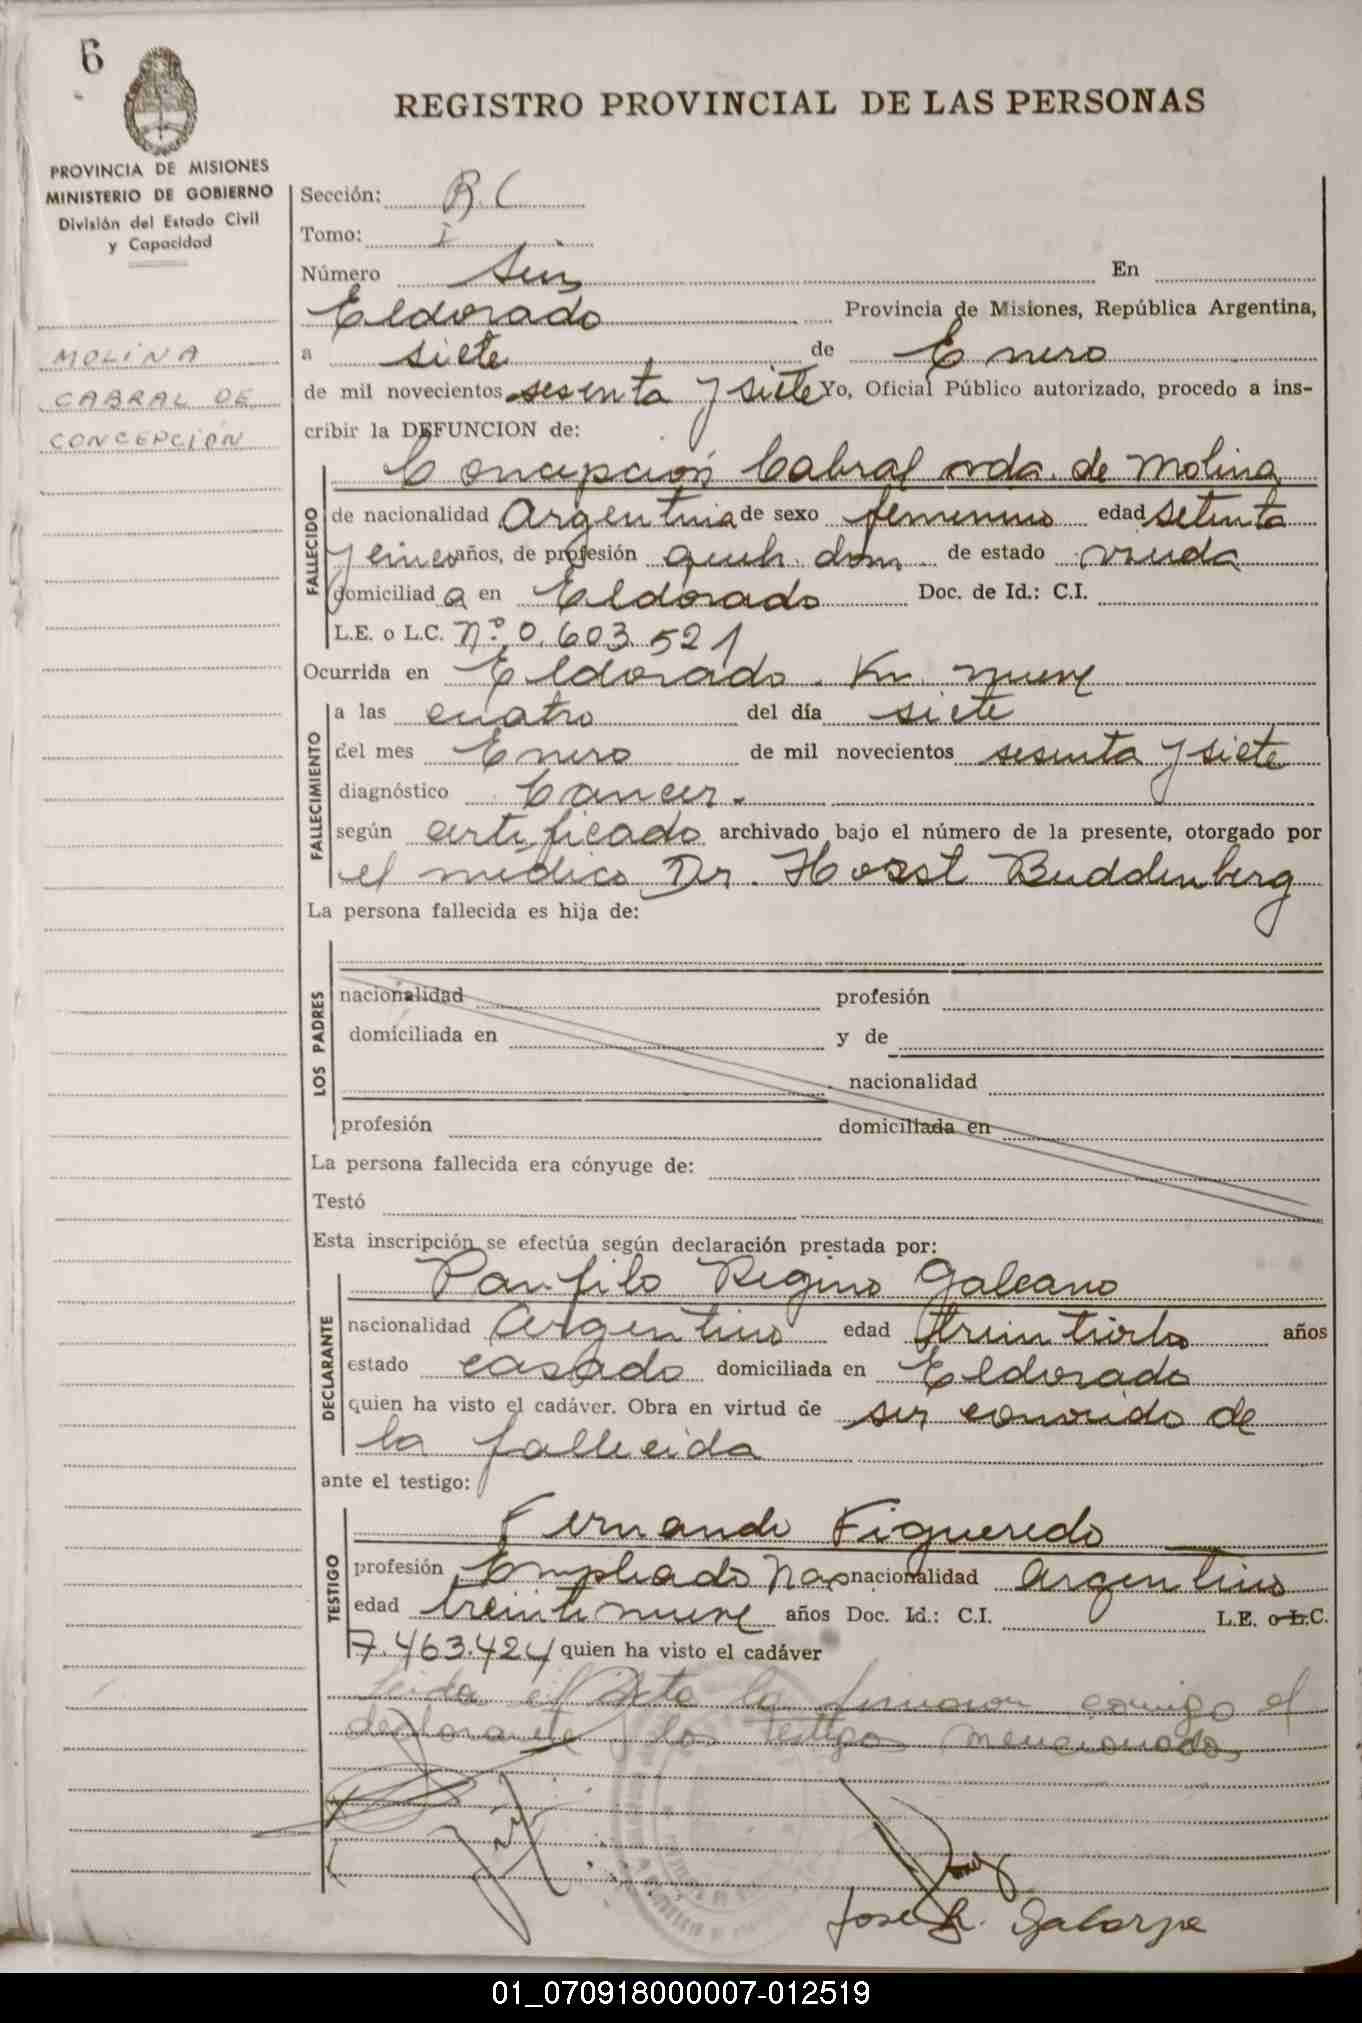 6
REGISTRO PROVINCIAL DE LAS PERSONAS
PROVINCIA DE MISIONES
MINISTERIO DE GOBIERNO
División del Estado Civil
y Capacidad
MOLINA
CABRAL DE
CONCEPCION
Sección: R.C
Tomo: I
Número Seis En
Eldorado Provincia de Misiones, República Argentina,
a siete de Enero
de mil novecientos sesenta y siete Yo, Oficial Público autorizado, procedo a ins-
cribir la DEFUNCION de:
FALLECIDO
Concepción Cabral vda. de Molina
de nacionalidad Argentina de sexo femenino edad setenta
y cinco años, de profesión queh. dom. de estado viuda
domiciliad a en Eldorado Doc. de Id.: C.I.
L.E. o L.C. Nº. 0.603.521
Ocurrida en Eldorado. Km. nueve
FALLECIMIENTO
a las cuatro del día siete
del mes Enero de mil novecientos sesenta y siete
diagnóstico Cancer.
según certificado archivado bajo el número de la presente, otorgado por
el médico Dr. Horst Buddenberg
La persona fallecida es hija de:
LOS PADRES
nacionalidad profesión
domiciliada en y de
nacionalidad
profesión domiciliada en
La persona fallecida era cónyuge de:
Testó
Esta inscripción se efectúa según declaración prestada por:
DECLARANTE
Panfilo Regino Galeano
nacionalidad Argentino edad años
estado casado domiciliada en Eldorado
quien ha visto el cadáver. Obra en virtud de ser conocido de
la fallecida
ante el testigo:
TESTIGO
Fernando Figueredo
profesión Empleado Nac nacionalidad Argentino
edad treintinueve años Doc. Id.: C.I. L.E. o L.C.
7.463.424 quien ha visto el cadáver
Leida el Acta la firmaron conmigo el
declarante y los testigos mencionados
Jose
01_070918000007-012519